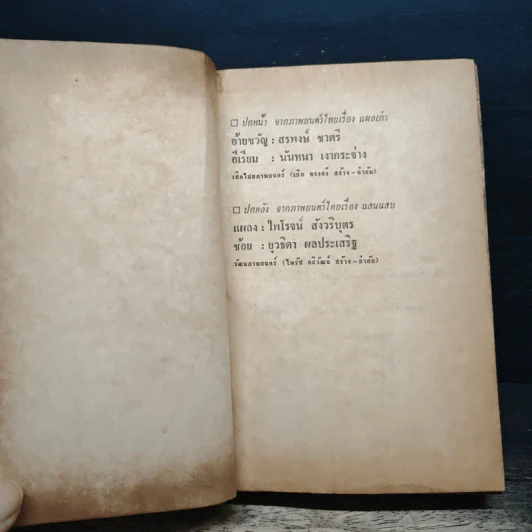 □ ปกหน้า จากภาพยนตร์ไทยเรื่อง แผลเก่า
อ้ายขวัญ : สรพงษ์ ชาตรี
อีเรียม : นันทนา เงากระจ่าง
เชิดไชยภาพยนตร์ (เชิด ทรงศรี สร้าง-กำกับ)
□ ปกหลัง จากภาพยนตร์ไทยเรื่อง แสนแสบ
แผลง : ไพโรจน์ สังวริบุตร
ช้อย : ยุวธิดา ผลประเสริฐ
วัฒนภาพยนตร์ (ไพรัช สร้าง-กำกับ)